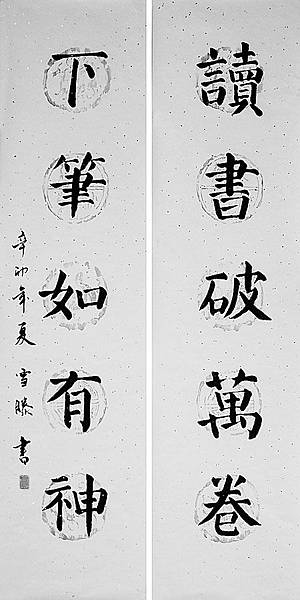 讀書破萬卷
下筆如有神
辛卯年夏雪滕書